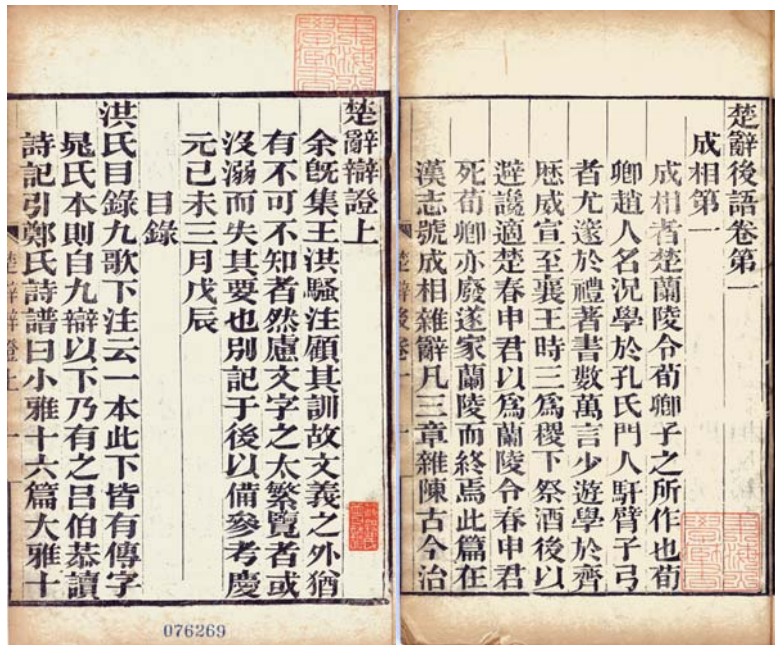 楚辭後語卷第一
成相第一
成相者楚蘭陵令荀卿子之所作也荀
卿趙人名況學於孔氏門人馯臂子弓
者尤邃於禮著書數萬言少遊學於齊
歷威宣至襄王時三爲稷下祭酒後以
避讒適楚春申君以爲蘭陵令春申君
死荀卿亦廢遂家蘭陵而終焉此篇在
漢志號成相雜辭凡三章雜陳古今治
楚辭後卷一
一
楚辭辯證上
余旣集王洪騷注顧其訓故文義之外猶
有不可不知者然慮文字之太繁覽者或
沒溺而失其要也別記于後以備參考慶
元己未三月戊辰
目錄
洪氏目錄九歌下注云一本此下皆有傳字
晁氏本則自九辯以下乃有之呂伯恭讀
詩記引鄭氏詩譜曰小雅十六篇大雅十
楚辭辯證上
一
076269